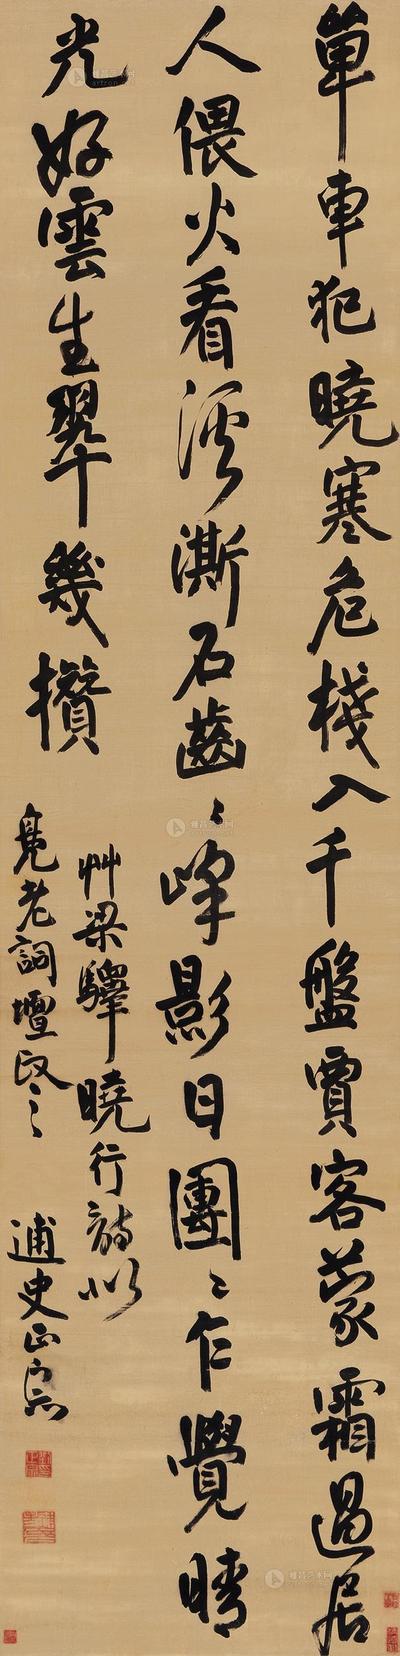 單車犯曉寒危棧入千盤賈客蒙霜過居
人偎火看溪澌石齒〻峰影日團〻乍覺晴
光好雲生翠幾攢
艸梁驛曉行詩似
老詞壇政之
逋史正宗